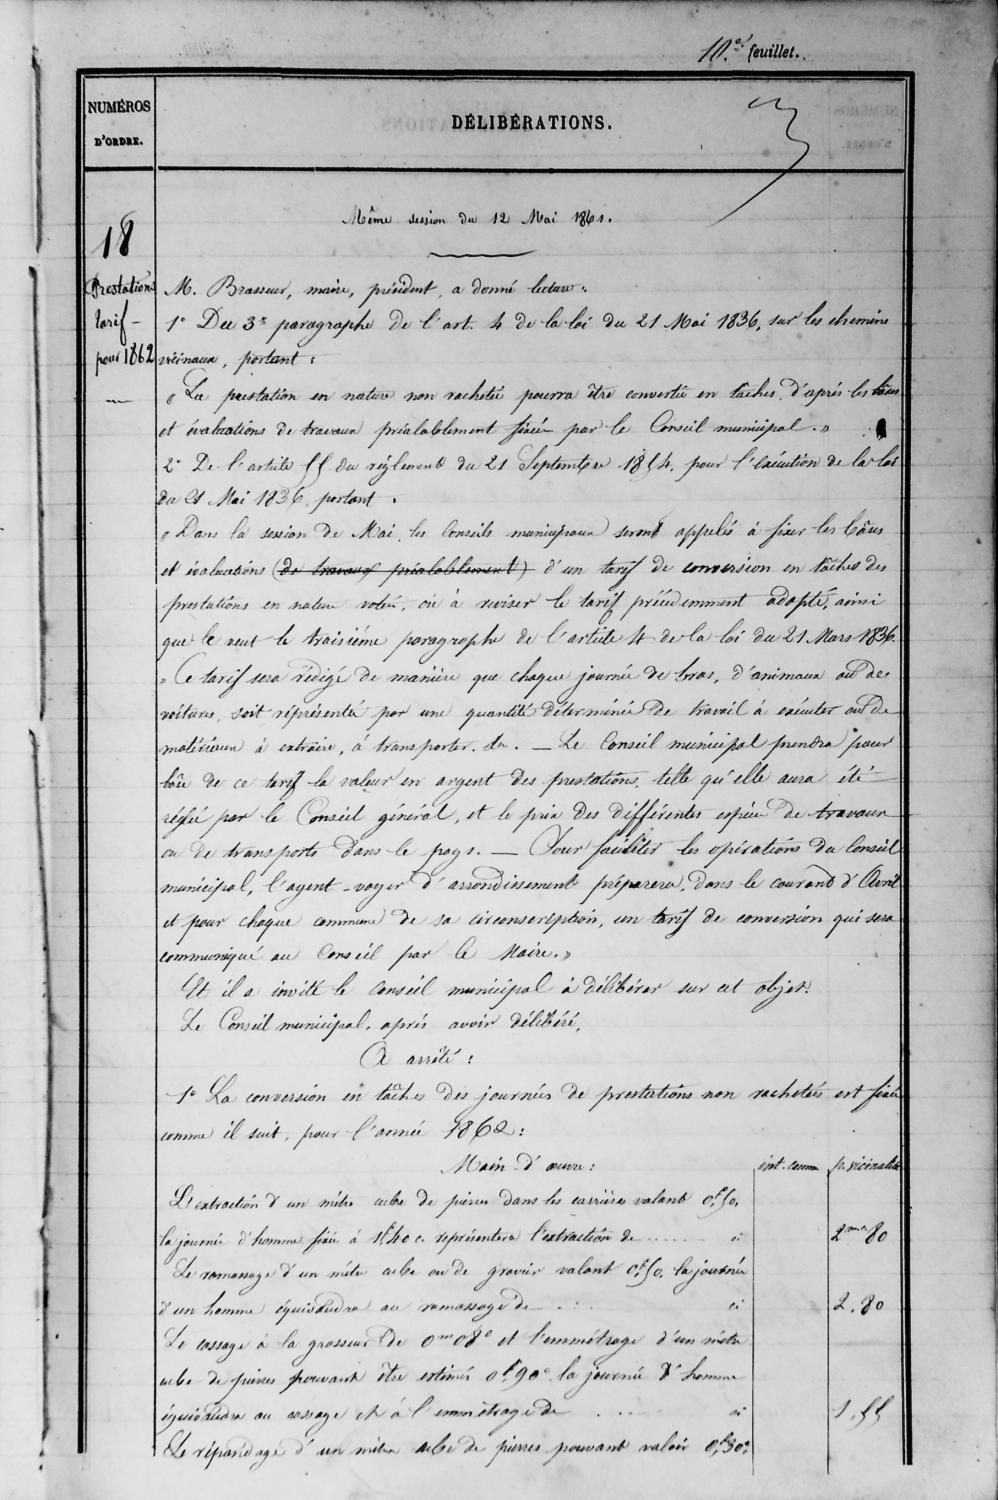 10.e feuillet.
NUMÉROS
D'ORDRE.
DÉLIBÉRATIONS.
Même session du 12 Mai 1861.
18
Prestations
tarif —
pour 1862
M. Brasseur, maire, président, a donné lecture :
1° Du 3e paragraphe de l'art. 4 de la loi du 21 Mai 1836, sur les chemins
vicinaux, portant :
« La prestation en nature non rachetée pourra être convertie en tâches, d'après les bâses
et évaluations de travaux préalablement fixées par le Conseil municipal. »
2° De l'article 55 du règlement du 21 Septembre 1854, pour l'exécution de la loi
du 21 Mai 1836, portant :
« Dans la session de Mai, les Conseils municipaux seront appelés à fixer les bâses
et évaluations (de travaux préalablement) d'un tarif de conversion en tâches des
prestations en nature votées, ou à reviser le tarif précédemment adopté, ainsi
que le veut le troisième paragraphe de l'article 4 de la loi du 21 Mars 1836.
» Ce tarif sera rédigé de manière que chaque journée de bras, d'animaux ou de
voitures, soit représentée par une quantité déterminée de travail à exécuter ou de
matériaux à extraire, à transporter. &a. — Le Conseil municipal prendra pour
bâse de ce tarif la valeur en argent des prestations, telle qu'elle aura été
réglée par le Conseil général, et le prix des différentes espèces de travaux
ou de transports dans le pays. — Pour faciliter les opérations du Conseil
municipal, l'agent-voyer d'arrondissement préparera, dans le courant d'Avril
et pour chaque commune de sa circonscription, un tarif de conversion qui sera
communiqué au Conseil par le Maire. »
Et il a invité le Conseil municipal à délibérer sur cet objet.
Le Conseil municipal, après avoir délibéré,
A arrêté :
1° La conversion en tâches des journées de prestations non rachetées est fixée
comme il suit, pour l'année 1862 :
Main-d'œuvre :
int. comm.
p. vicinalité
L'extraction d'un mètre cube de pierres dans les carrières valant 0f,50,
la journée d'homme fixée à 1f40c. représentera l'extraction de ...... ci
2mc 80
Le ramassage d'un mètre cube ou de gravier valant 0f,50, la journée
d'un homme équivaudra au ramassage de ... ci
2.80
Le cassage à la grosseur de 0m08c et l'emmétrage d'un mètre
cube de pierres pouvant être estimés 0f90c, la journée d'homme
équivaudra au cassage et à l'emmétrage de .... ci
1.55
Le répandage d'un mètre cube de pierres pouvant valoir 0f,30c,